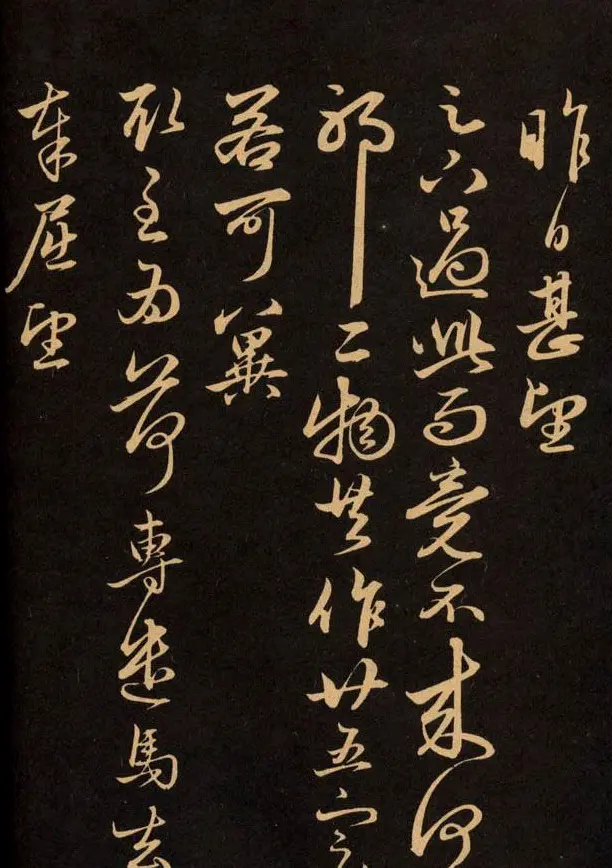 昨日甚望
之六過此而竟不來何
耶二物共作廿五千
若可冀
取至為荷專遣馬去
奉屈望